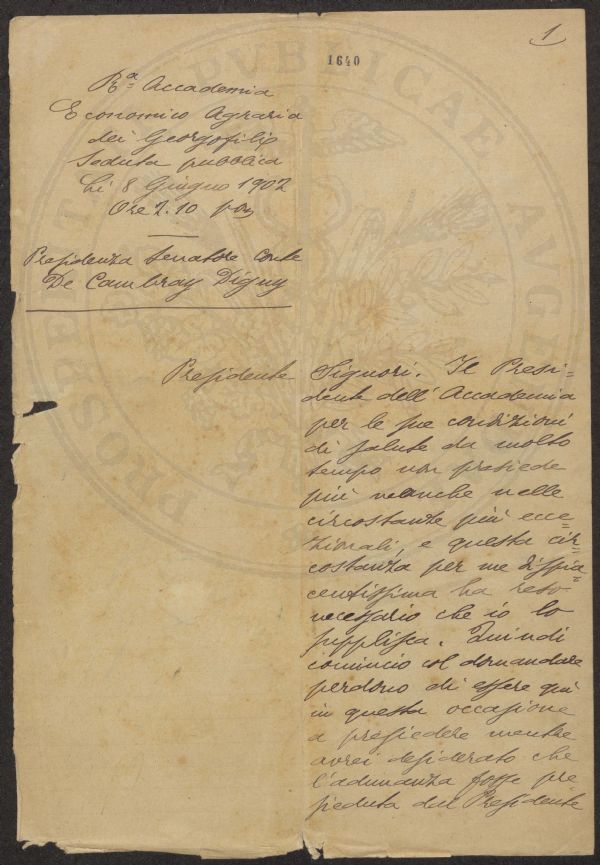 1
1640
PROSPERITATI PVBLICAE AVGENDAE
R.ª Accademia
Economico Agraria
dei Georgofili
Seduta pubblica
Lì 8 Giugno 1902
Ore 2.10 pom
Presidenza Senatore Conte
De Cambray Digny
Presidente
Signori. Il Presi=
dente dell'Accademia
per le sue condizioni
di salute da molto
tempo non presiede
più neanche nelle
circostanze più ecce=
zionali, e questa cir=
costanza per me dispia=
centissima ha reso
necessario che io lo
supplisca. Quindi
comincio col domandare
perdono di essere qui
in questa occasione
a presiedere mentre
avrei desiderato che
l'adunanza fosse pre
sieduta dal Presidente